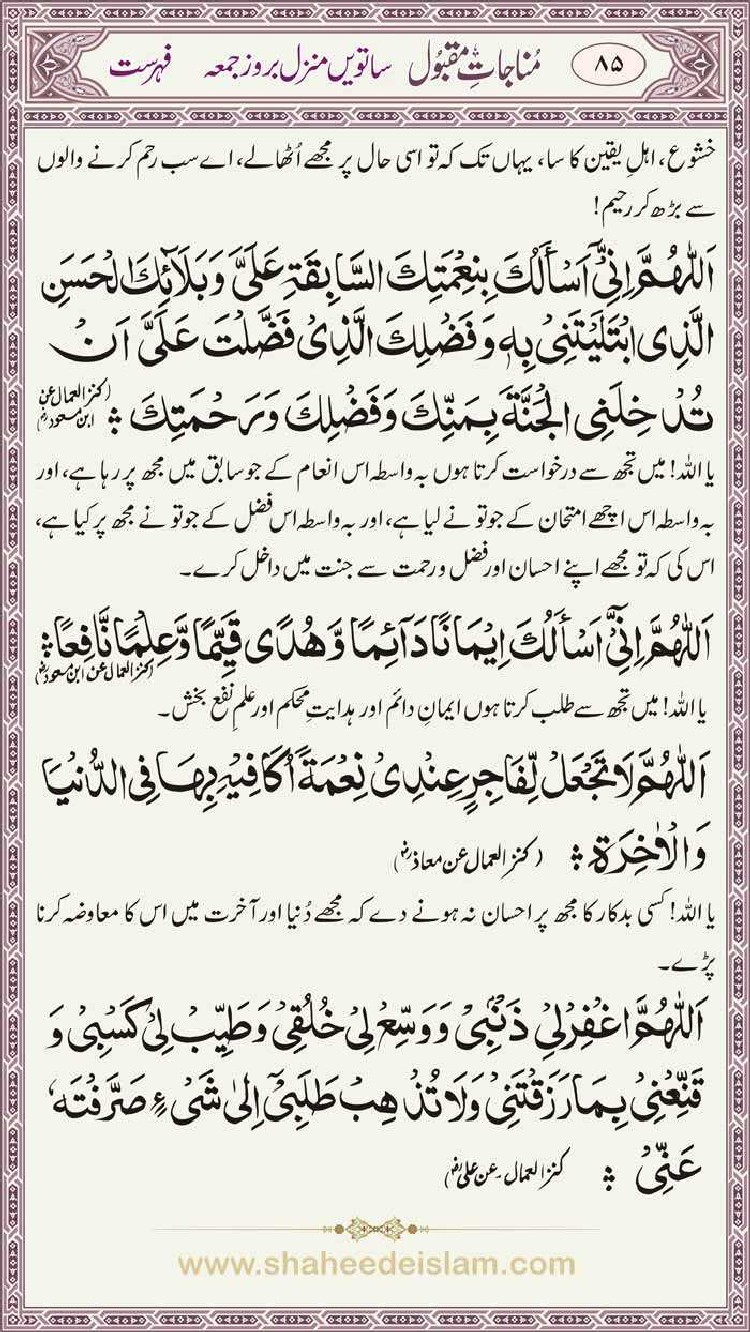 ۸۵ مُناجاتِ مقبُول ساتویں منزل بروز جمعہ فہرست
خشوع، اہلِ یقین کا سا، یہاں تک کہ تو اسی حال پر مجھے اُٹھالے، اے سب رحم کرنے والوں
سے بڑھ کر رحیم!
اَللّٰهُمَّ اِنِّیْٓ اَسْأَلُكَ بِنِعْمَتِكَ السَّابِقَةِ عَلَیَّ وَبَلَآئِكَ الْحَسَنِ
الَّذِی ابْتَلَیْتَنِیْ بِهٖ وَفَضْلِكَ الَّذِیْ فَضَّلْتَ عَلَیَّ اَنْ
تُدْخِلَنِی الْجَنَّةَ بِمَنِّكَ وَفَضْلِكَ وَرَحْمَتِكَ (کنز العمال عن ابن مسعودؓ)
یا اللہ! میں تجھ سے درخواست کرتا ہوں بہ واسطہ اس انعام کے جو سابق میں مجھ پر رہا ہے، اور
بہ واسطہ اس اچھے امتحان کے جو تو نے لیا ہے، اور بہ واسطہ اس فضل کے جو تو نے مجھ پر کیا ہے،
اس کی کہ تو مجھے اپنے احسان اور فضل و رحمت سے جنت میں داخل کرے۔
اَللّٰهُمَّ اِنِّیْٓ اَسْأَلُكَ اِیْمَانًا دَآئِمًا وَّهُدًی قَیِّمًا وَّعِلْمًا نَّافِعًا (کنز العمال عن ابن مسعودؓ)
یا اللہ! میں تجھ سے طلب کرتا ہوں ایمانِ دائم اور ہدایتِ محکم اور علمِ نفع بخش۔
اَللّٰهُمَّ لَا تَجْعَلْ لِّفَاجِرٍ عِنْدِیْ نِعْمَةً اُكَافِیْهِ بِهَا فِی الدُّنْیَا
وَالْاٰخِرَةِ (کنز العمال عن معاذؓ)
یا اللہ! کسی بدکار کا مجھ پر احسان نہ ہونے دے کہ مجھے دُنیا اور آخرت میں اس کا معاوضہ کرنا
پڑے۔
اَللّٰهُمَّ اغْفِرْلِیْ ذَنْۢبِیْ وَوَسِّعْ لِیْ خُلُقِیْ وَطَیِّبْ لِیْ كَسْبِیْ وَ
قَنِّعْنِیْ بِمَا رَزَقْتَنِیْ وَلَا تُذْهِبْ طَلَبِیْٓ اِلٰی شَیْءٍ صَرَّفْتَهٗ
عَنِّیْ کنز العمال۔ عن علیؓ)
www.shaheedeislam.com